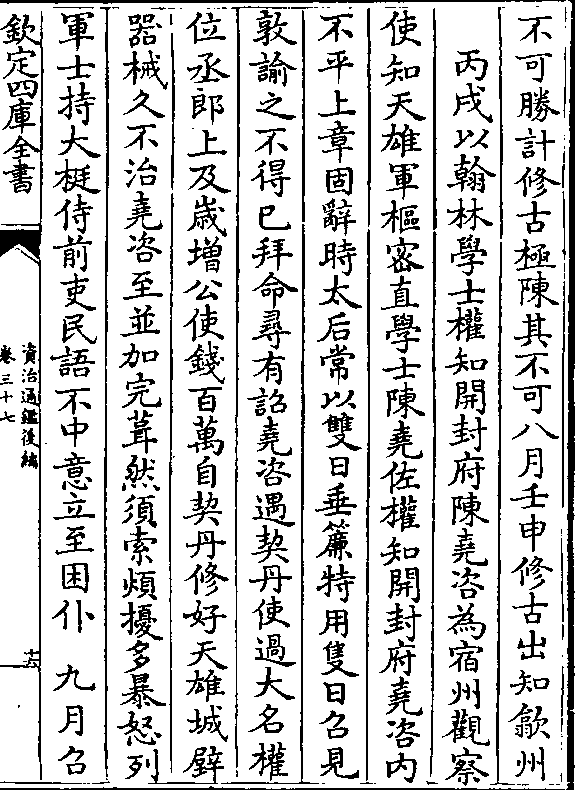 不可勝計修古極陳其不可八月壬申修古出知歙州
丙戌以翰林學士權知開封府陳堯咨為宿州觀察
使知天雄軍樞密直學士陳堯佐權知開封府堯咨内
不平上章固辭時太后常以雙日垂簾特用隻日召見
敦諭之不得已拜命尋有詔堯咨遇契丹使過大名權
位丞郎上及歲增公使錢百萬自契丹修好天雄城壁
器械久不治堯咨至並加完葺然須索煩擾多暴怒列
軍士持大梃侍前吏民語不中意立至困仆 九月召
欽定四庫全書
資治通鑑後編
卷三十七
十六